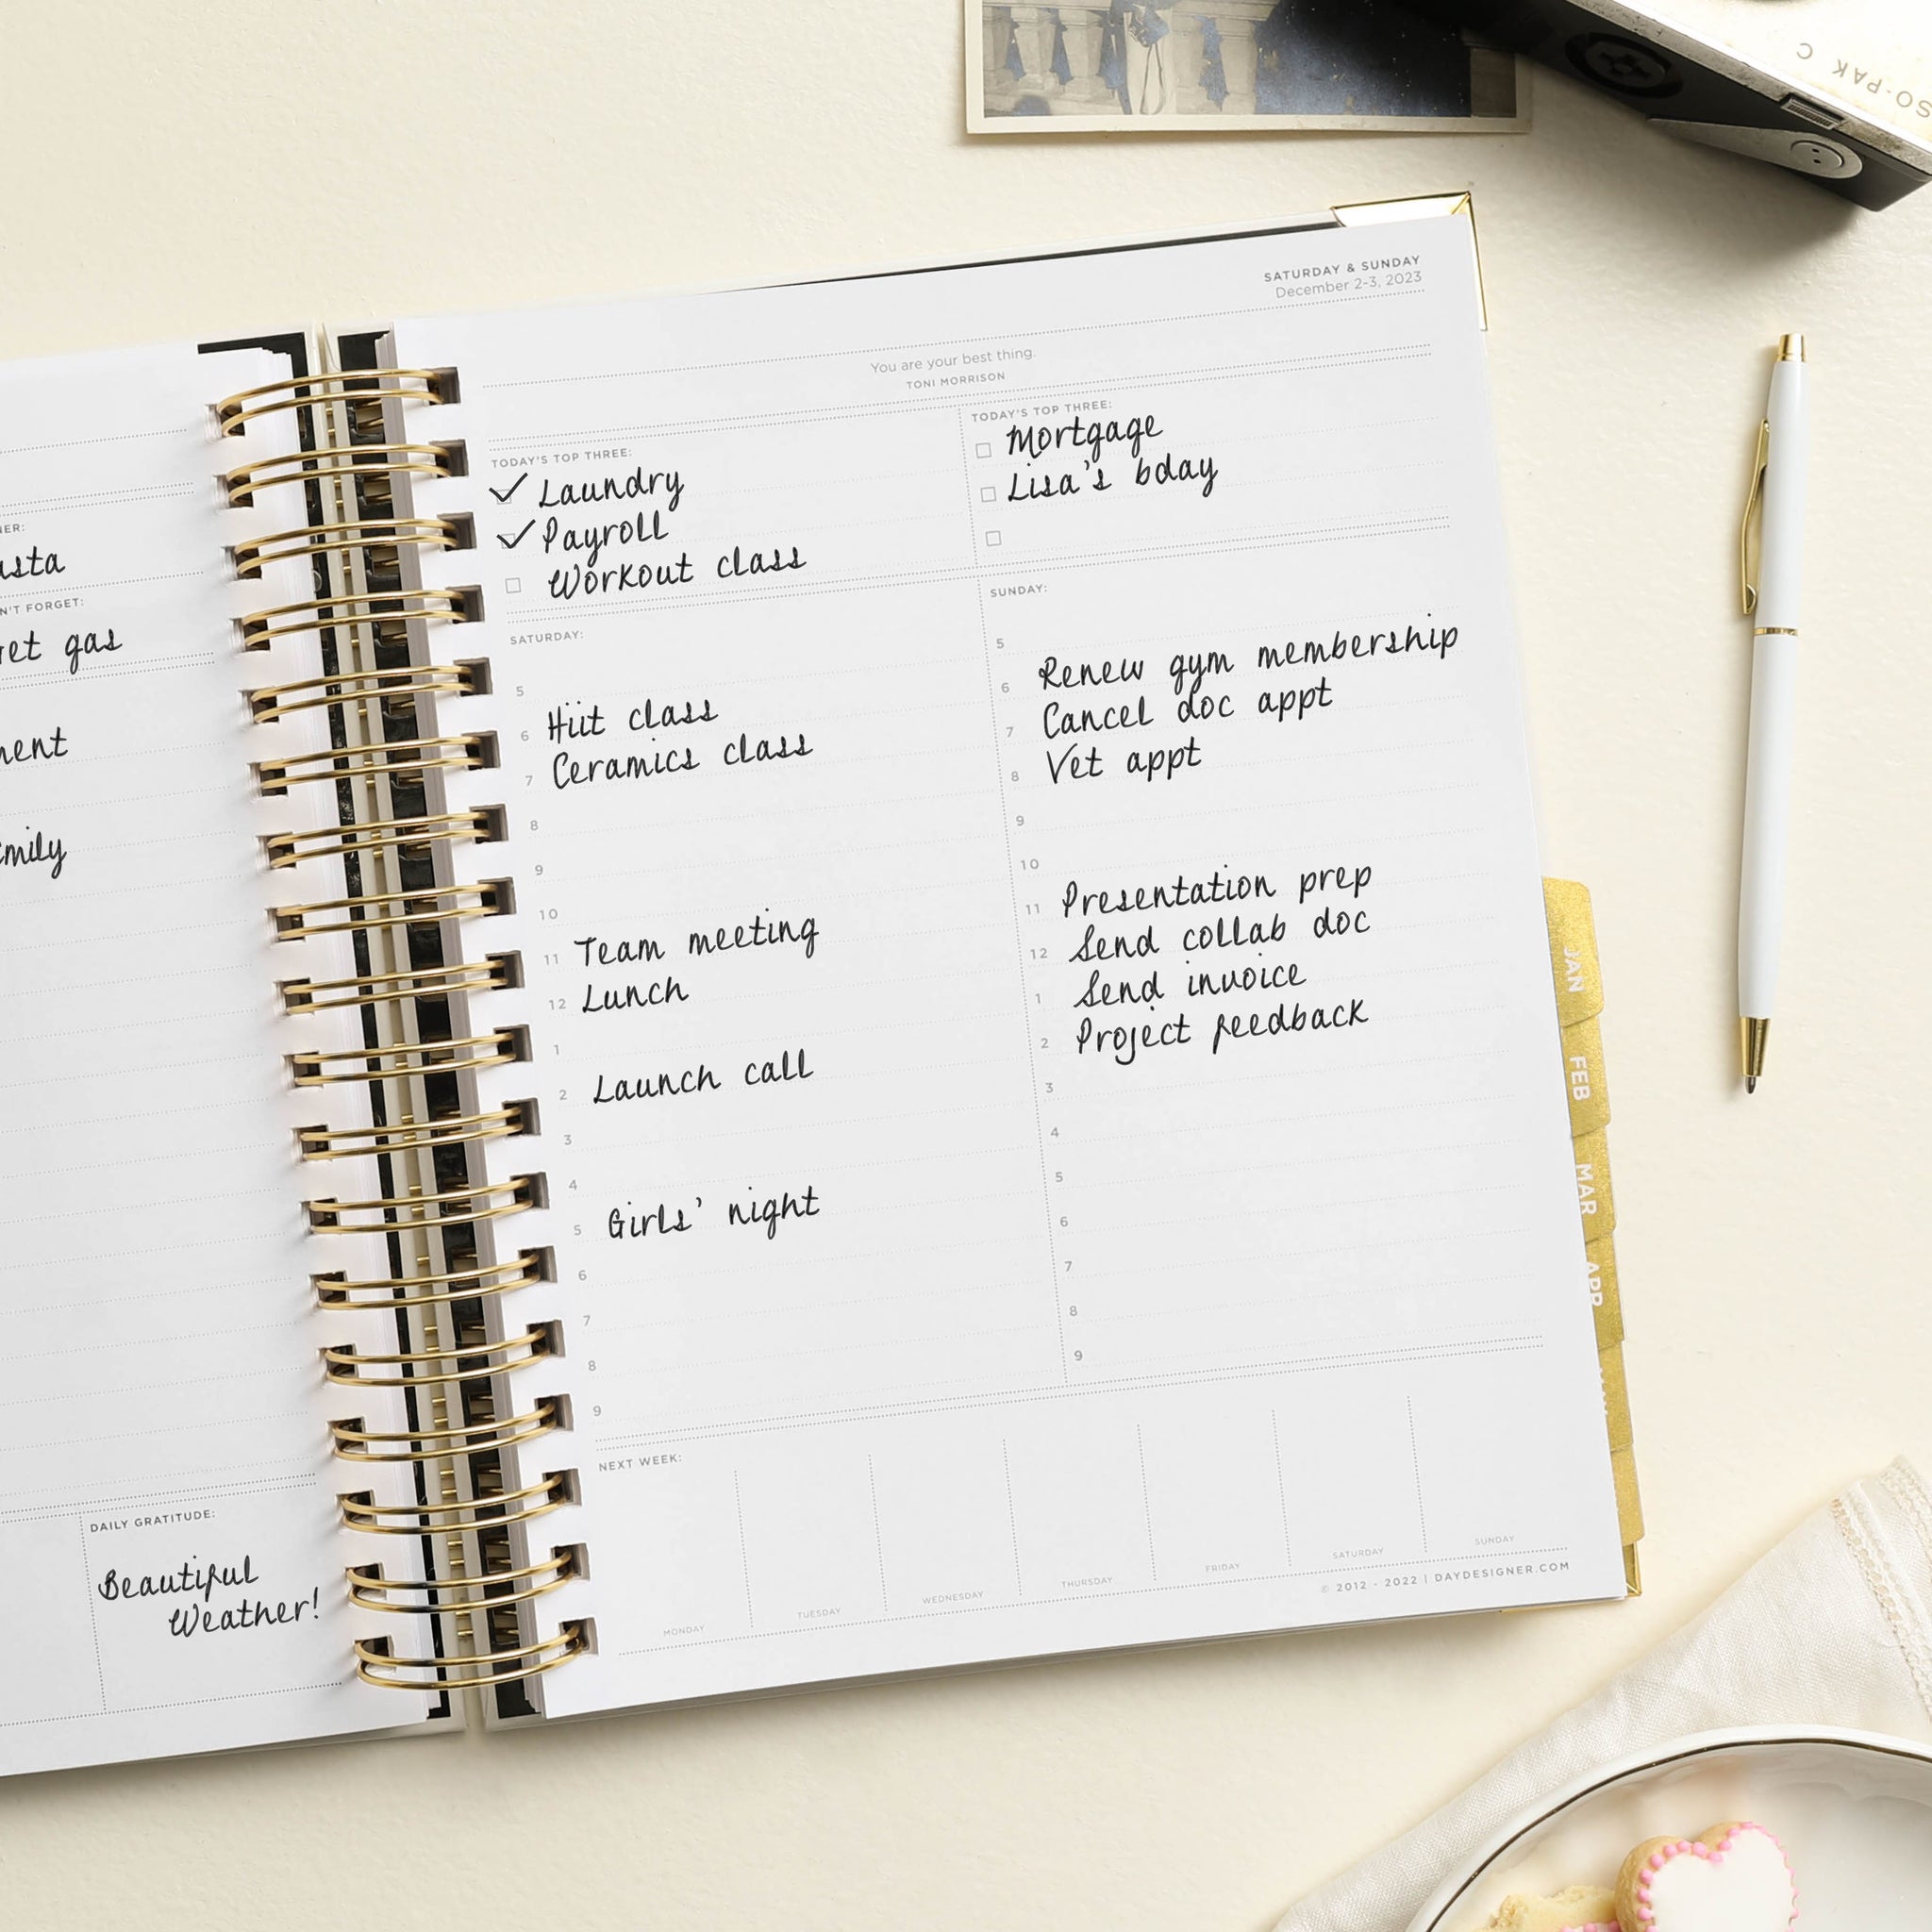 SO-PAK C
NER:
asta
N'T FORGET:
et gas
ment
mily
DAILY GRATITUDE:
Beautiful
Weather!
SATURDAY & SUNDAY
December 2-3, 2023
You are your best thing.
TONI MORRISON
TODAY'S TOP THREE:
Laundry
Payroll
Workout class
TODAY'S TOP THREE:
Mortgage
Lisa's bday
SATURDAY:
5
6 Hiit class
7 Ceramics class
8
9
10
11 Team meeting
12 Lunch
1
2 Launch call
3
4
5 Girls' night
6
7
8
9
SUNDAY:
5
6 Renew gym membership
7 Cancel doc appt
8 Vet appt
9
10
11 Presentation prep
12 Send collab doc
1 Send invoice
2 Project feedback
3
4
5
6
7
8
9
NEXT WEEK:
MONDAY
TUESDAY
WEDNESDAY
THURSDAY
FRIDAY
SATURDAY
SUNDAY
© 2012 - 2022 | DAYDESIGNER.COM
JAN
FEB
MAR
APR